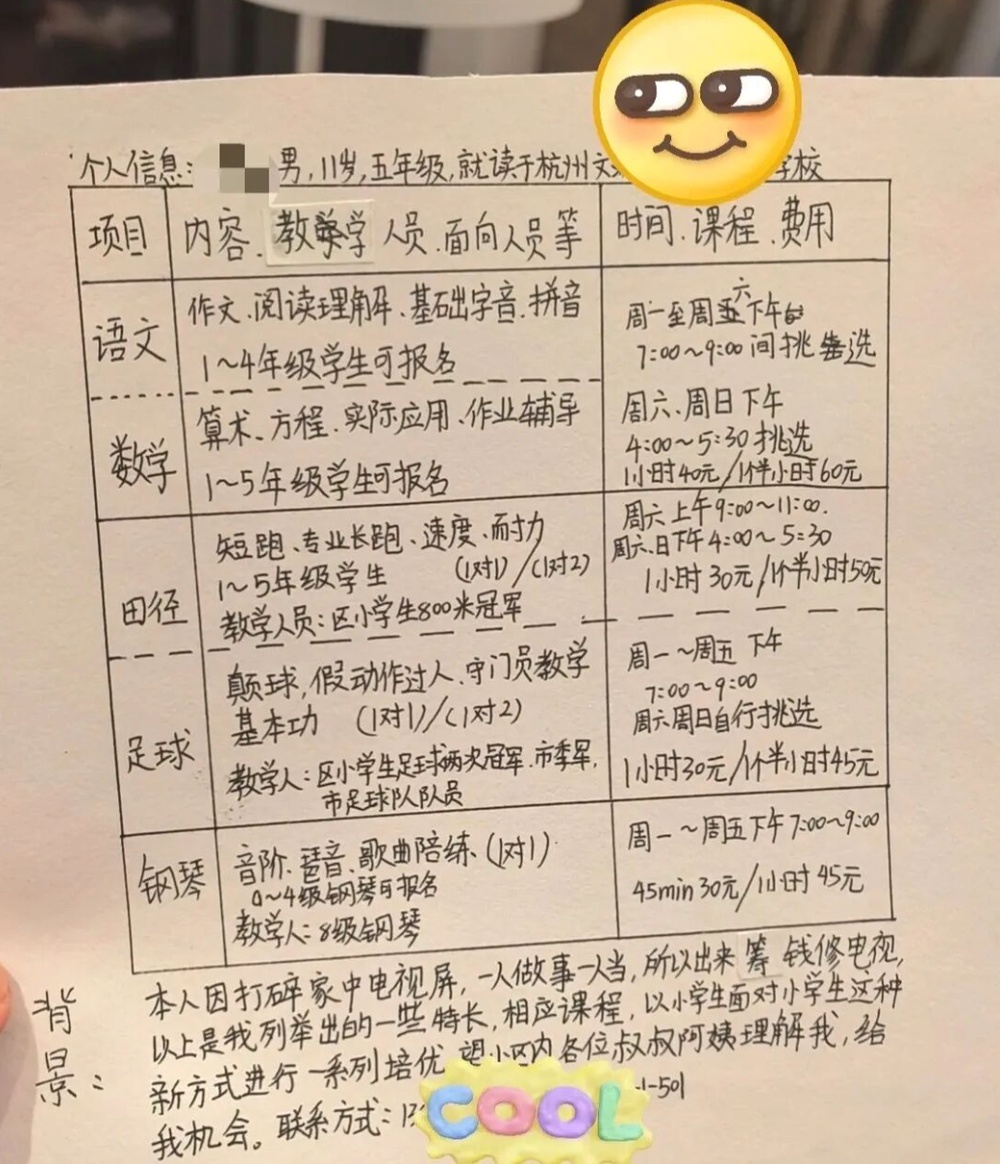 个人信息: 男,11岁,五年级,就读于杭州文 学校
项目 内容、教学人员、面向人员等 时间、课程、费用
语文
作文、阅读理解、基础字音、拼音
1~4年级学生可报名
周一至周六下午
7:00~9:00间挑选
数学
算术、方程、实际应用、作业辅导
1~5年级学生可报名
周六、周日下午
4:00~5:30挑选
1小时40元/1个半小时60元
田径
短跑、专业长跑、速度、耐力
1~5年级学生 (1对1)/(1对2)
教学人员:区小学生800米冠军
周六上午9:00~11:00.
周六、日下午4:00~5:30
1小时30元/1个半小时50元
足球
颠球,假动作过人、守门员教学
基本功 (1对1)/(1对2)
教学人:区小学生足球两次冠军、市季军,
市足球队队员
周一~周五下午
7:00~9:00
周六周日自行挑选
1小时30元/1个半小时45元
钢琴
音阶、琶音、歌曲陪练、(1对1)
0~4级钢琴可报名
教学人:8级钢琴
周一~周五下午7:00~9:00
45min30元/1小时45元
背景:
本人因打碎家中电视屏,一人做事一人当,所以出来筹钱修电视,
以上是我列举出的一些特长,相应课程,以小学生面对小学生这种
新方式进行一系列培优,望小区内各位叔叔阿姨理解我,给
我机会。联系方式:13 -1-501
COOL